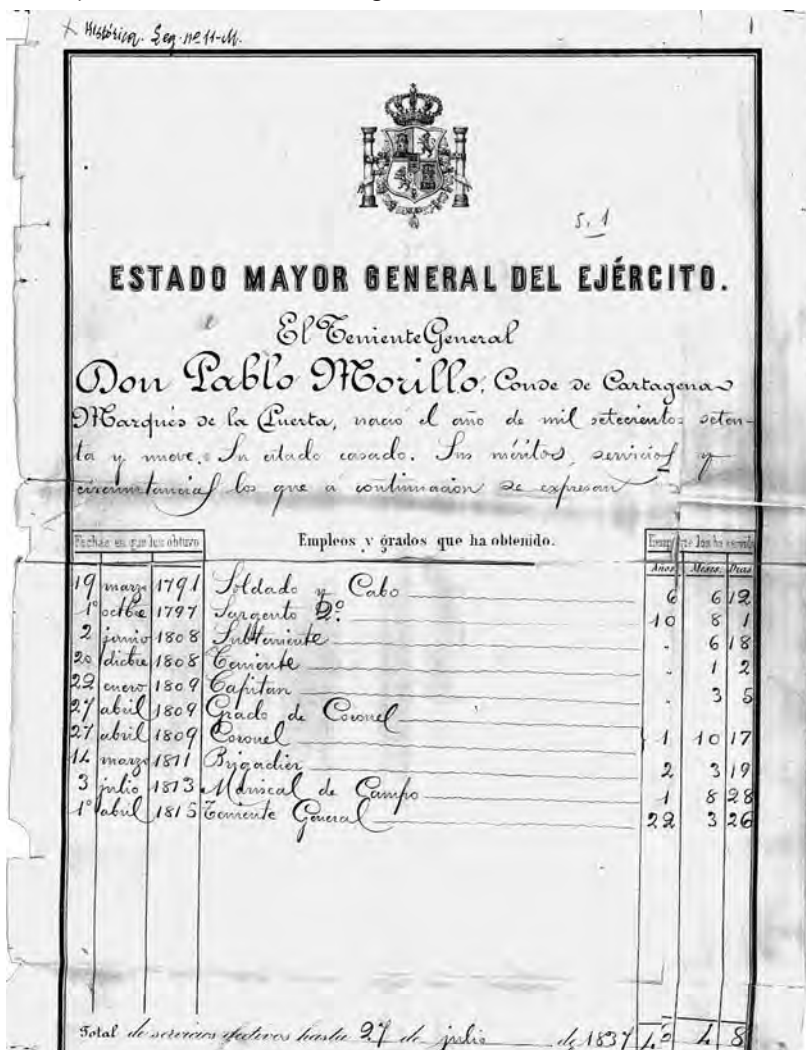 Histórica. Leg. nº 11-M.
5, 1
ESTADO MAYOR GENERAL DEL EJÉRCITO.
El Teniente General
Don Pablo Morillo, Conde de Cartagena
Marqués de la Puerta, nació el año de mil setecientos seten-
ta y nueve. Su estado casado. Sus méritos, servicios y
circunstancias los que á continuación se expresan
Fechas en que los obtuvo Empleos y grados que ha obtenido. Tiempo que los ha servido
Años Meses Dias
19 marzo 1791 Soldado y Cabo 6 6 12
1º octbre 1797 Sargento 2º 10 8 1
2 junio 1808 Subteniente . 6 18
20 dictre 1808 Teniente . 1 2
22 enero 1809 Capitan . 3 5
27 abril 1809 Grado de Coronel
27 abril 1809 Coronel 1 10 17
14 marzo 1811 Brigadier 2 3 19
3 julio 1813 Mariscal de Campo 1 8 28
1º abril 1815 Teniente General 22 3 26
Total de servicios efectivos hasta 27 de julio de 1837 4 8